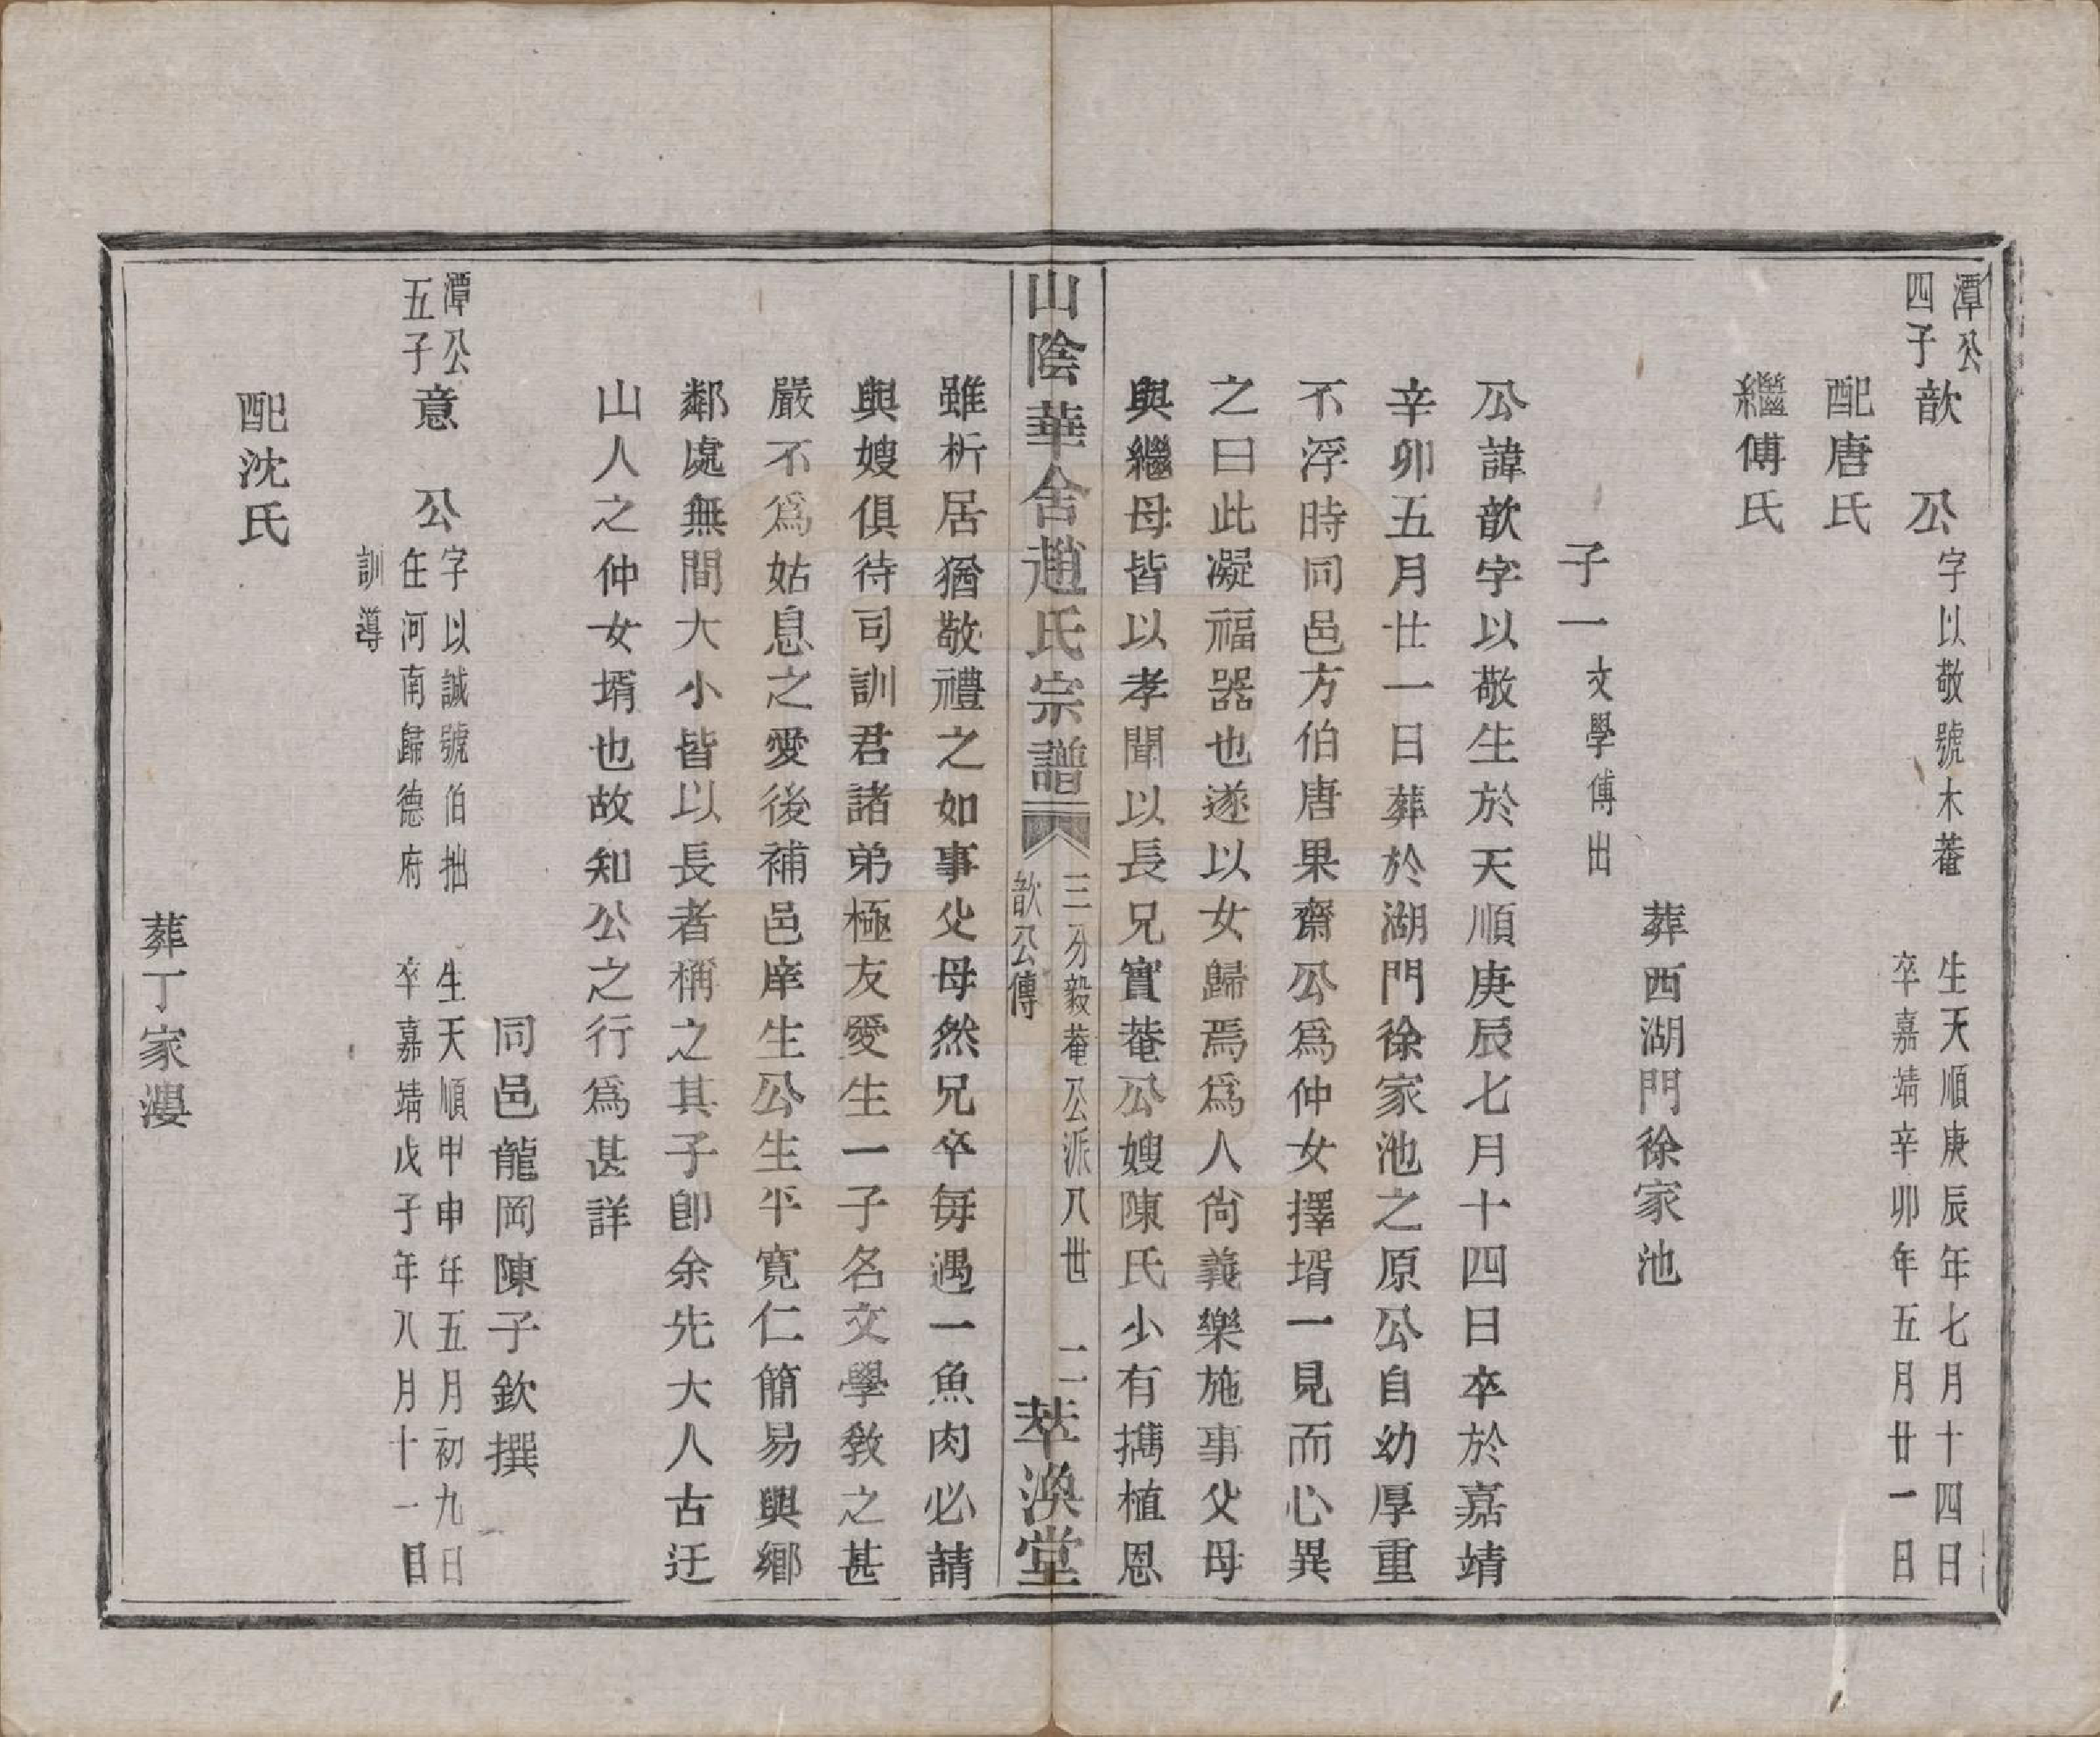 潭公
四子
歆　公
字以敬號木菴
生天順庚辰年七月十四日
卒嘉靖辛卯年五月廿一日
配唐氏
繼傅氏
葬西湖門徐家池
子一
文學傅出
公諱歆字以敬生於天順庚辰七月十四日卒於嘉靖
辛卯五月廿一日葬於湖門徐家池之原公自幼厚重
不浮時同邑方伯唐果齋公爲仲女擇壻一見而心異
之曰此凝福器也遂以女歸焉爲人尙義樂施事父母
與繼母皆以孝聞以長兄實菴公嫂陳氏少有擕植恩
山陰華舍趙氏宗譜
三分毅菴公派八世　二
歆公傳
萃渙堂
雖析居猶敬禮之如事父母然兄卒每遇一魚肉必請
與嫂俱待司訓君諸弟極友愛生一子名文學敎之甚
嚴不爲姑息之愛後補邑庠生公生平寬仁簡易與鄉
鄰處無間大小皆以長者稱之其子卽余先大人古迂
山人之仲女壻也故知公之行爲甚詳
同邑龍岡陳子欽撰
潭公
五子
意　公
字以誠號伯拙
任河南歸德府
訓導
生天順甲申年五月初九日
卒嘉靖戊子年八月十一日
配沈氏
葬丁家漊